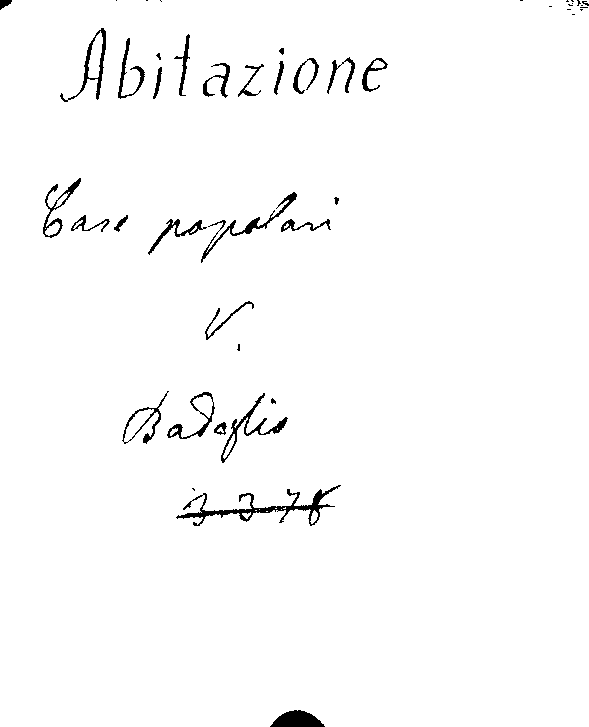 Abitazione
Case popolari
V.
Badoglio
3.3.78